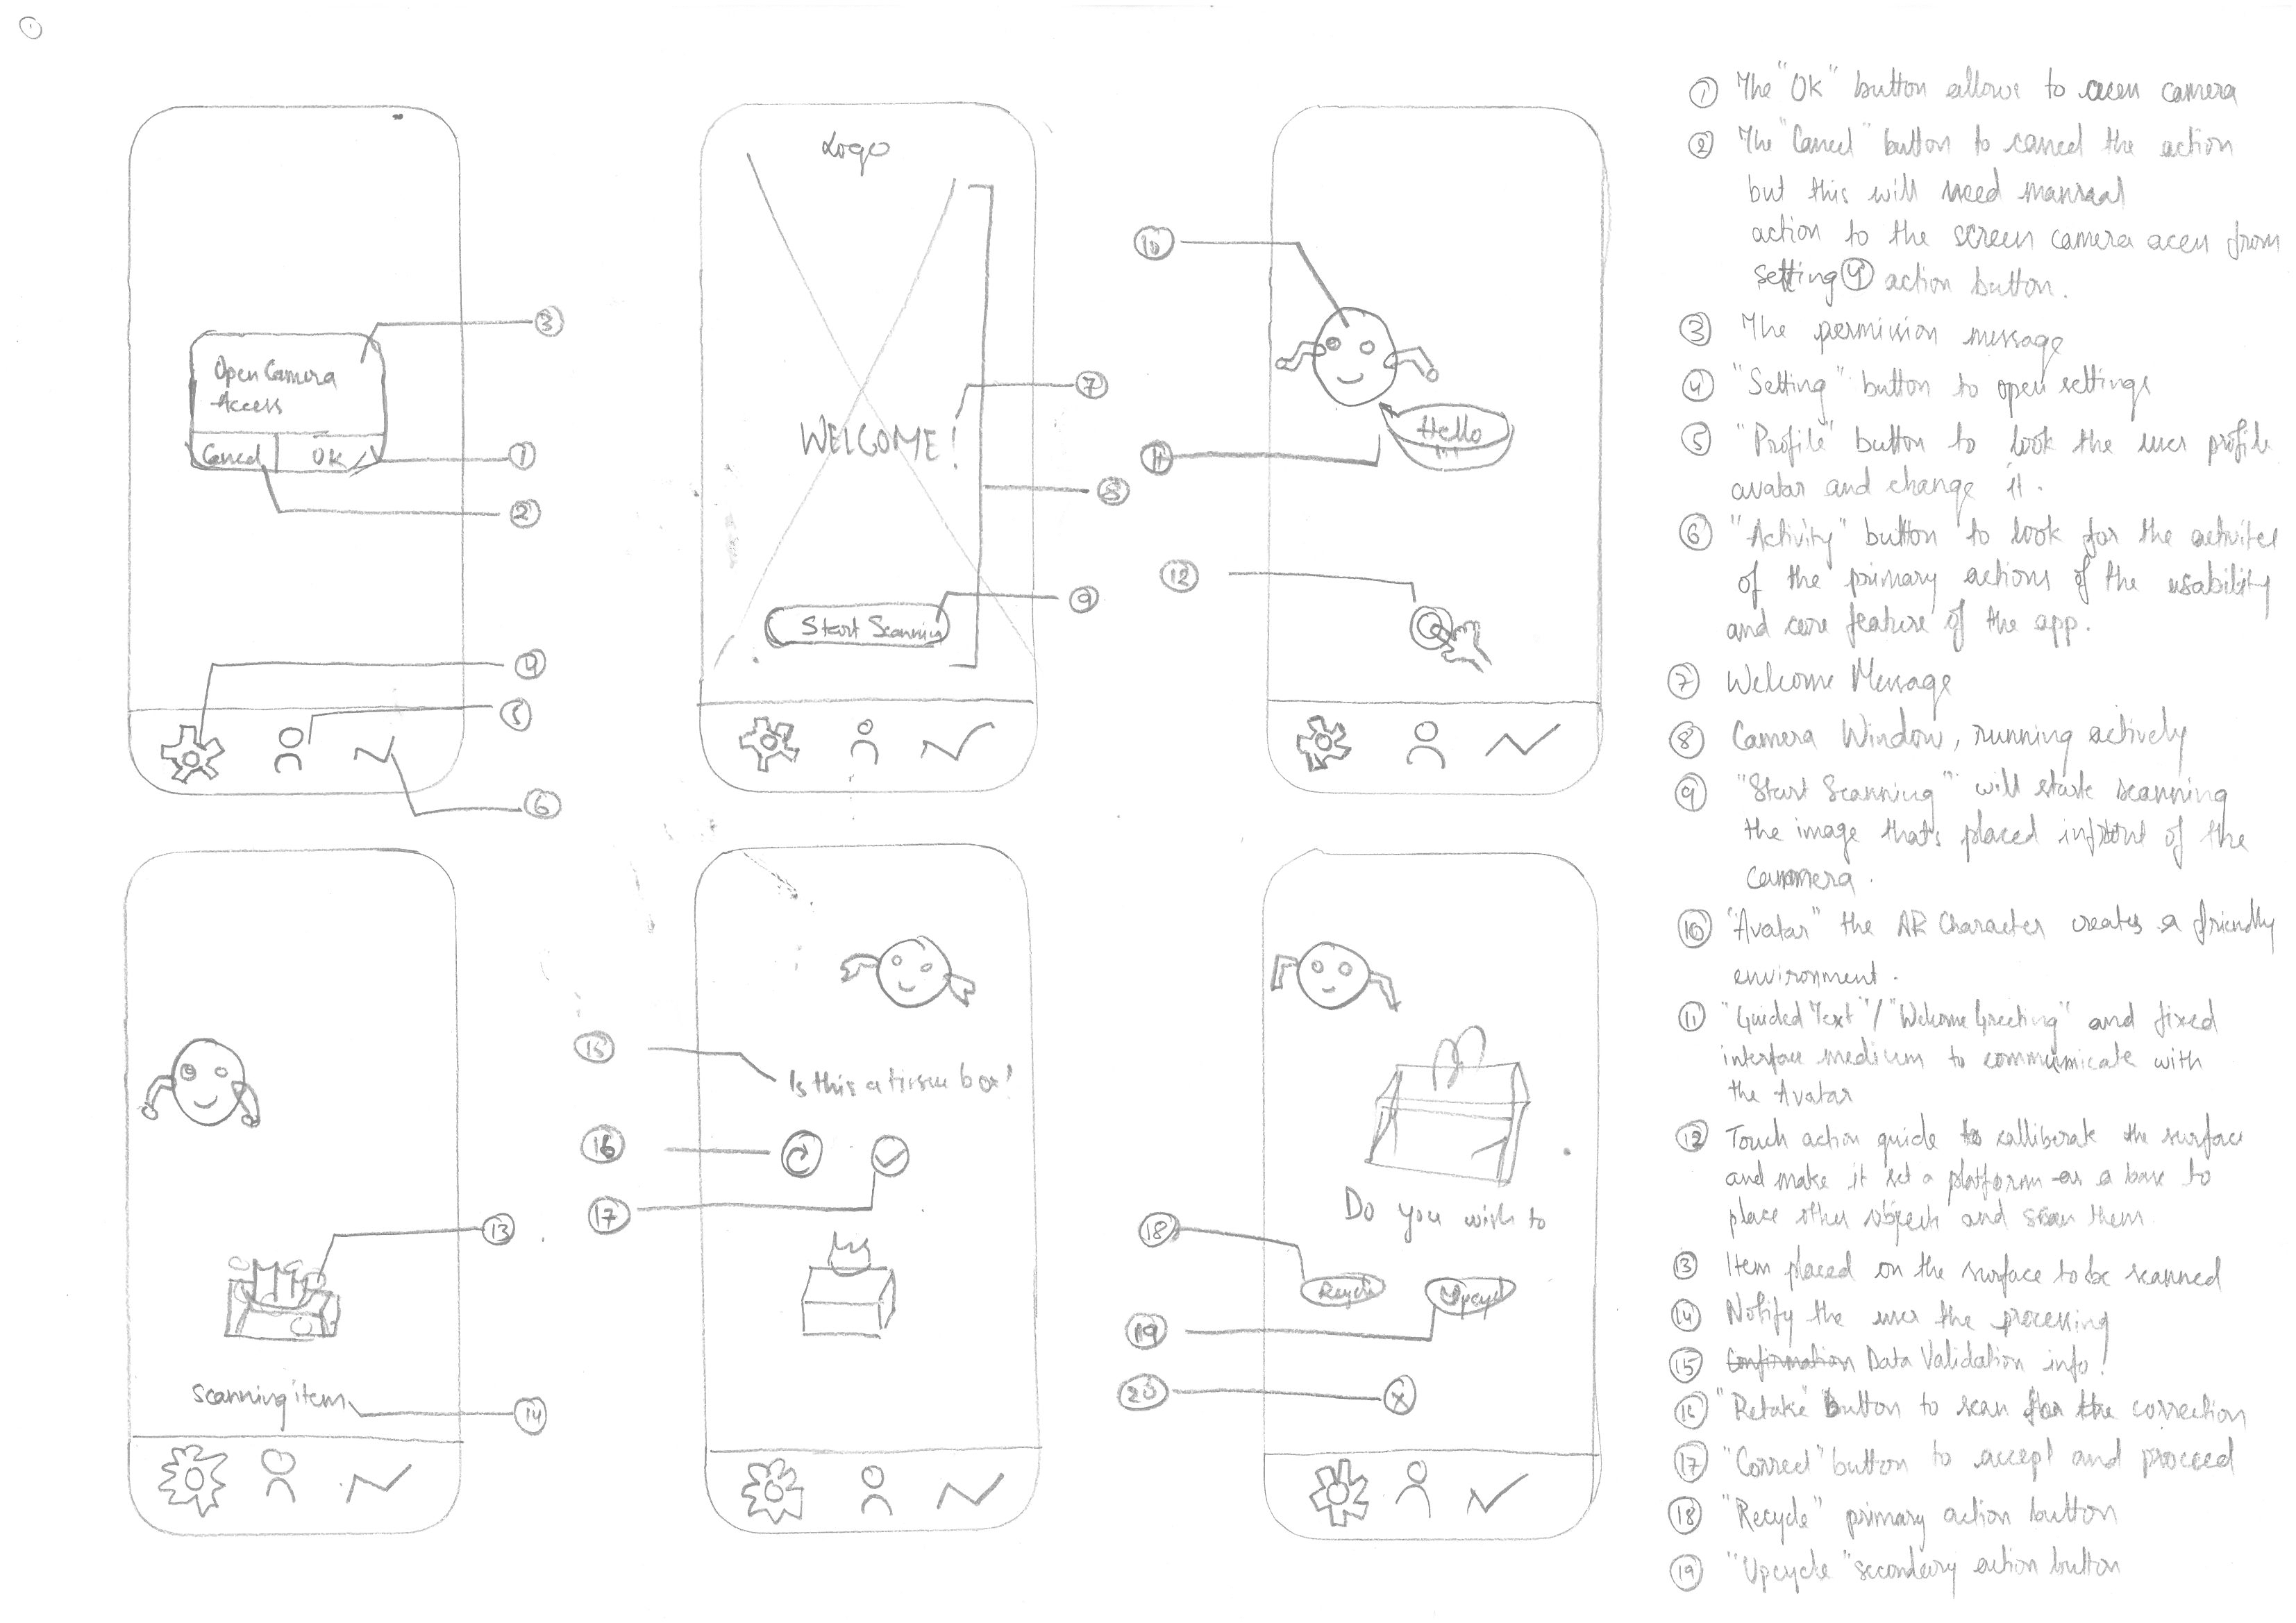 1
Open Camera
Access
Cancel
OK
3
1
2
4
5
6
Logo
WELCOME!
Start Scanning
7
8
9
10
Hello
!!!
11
12
13
Scanning item
14
15
Is this a tissue box?
16
17
Do you wish to
Recycle
Upcycle
18
19
20
1 The "OK" button allows to acces camera
2 The "Cancel" button to cancel the action
but this will need manual
action to the screen camera acces from
setting 4 action button.
3 The permission message
4 "Setting" button to open settings
5 "Profile" button to look the user profile
avatar and change it.
6 "Activity" button to look for the
of the primary actions of the usability
and core feature of the app.
7 Welcome Message
8 Camera Window, running actively
9 "Start Scanning" will start scanning
the image that's placed infront of the
cammera.
10 "Avatar" the AR Character creates a friendly
environment.
11 "Guided Text"/"Welcome Greeting" and fixed
interface medium to communicate with
the Avatar
12 Touch action guide to calliberate the surface
and make it set a platform as a base to
place other objects and scan them
13 Item placed on the surface to be scanned
14 Notify the user the processing
15 Confirmation Data Validation info!
16 "Retake" button to scan for the correction
17 "Correct" button to accept and proceed
18 "Recycle" primary action button
19 "Upcycle" secondary action button